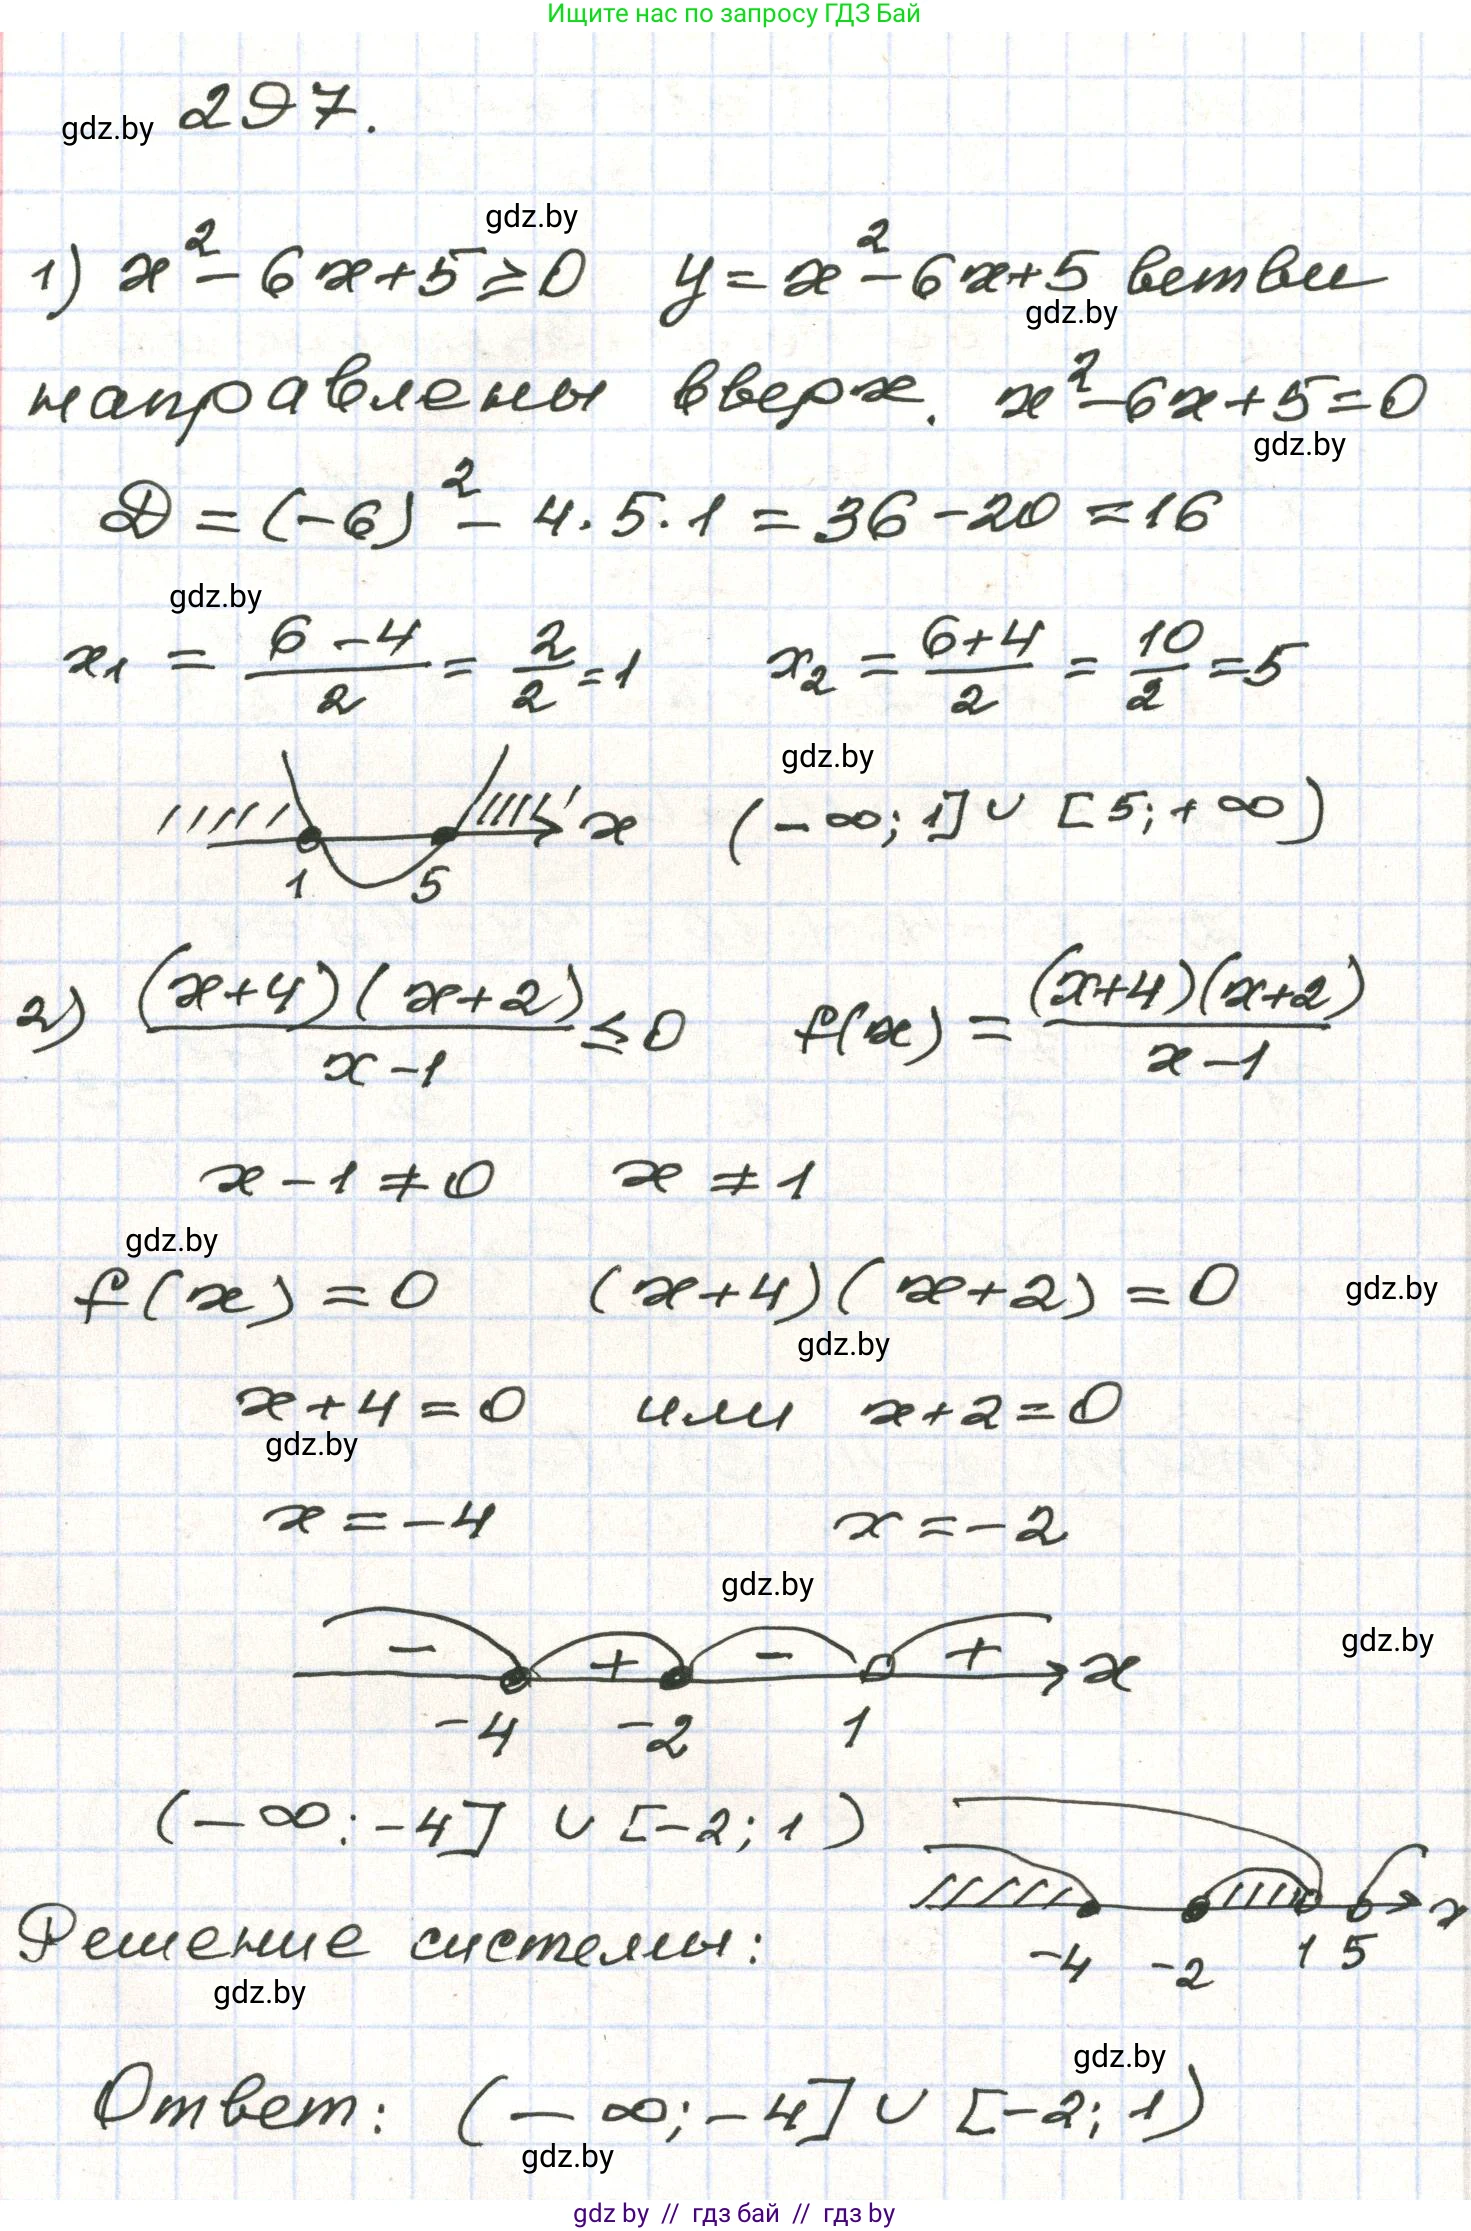 Ищите нас по запросу ГДЗ Бай
gdz.by 297.
gdz.by
1) x² - 6x + 5 ≥ 0 y = x² - 6x + 5 ветви
gdz.by
направлены вверх. x² - 6x + 5 = 0
gdz.by
D = (-6)² - 4 · 5 · 1 = 36 - 20 = 16
gdz.by
x₁ = (6 - 4)/2 = 2/2 = 1 x₂ = (6 + 4)/2 = 10/2 = 5
gdz.by
x (-∞; 1] ∪ [5; +∞)
1 5
2) (x+4)(x+2)/(x-1) ≤ 0 f(x) = (x+4)(x+2)/(x-1)
x - 1 ≠ 0 x ≠ 1
gdz.by
f(x) = 0 (x+4)(x+2) = 0 gdz.by
gdz.by
x + 4 = 0 или x + 2 = 0
gdz.by
x = -4 x = -2
gdz.by
gdz.by
- + - + x
-4 -2 1
(-∞; -4] ∪ [-2; 1)
x
Решение системы: -4 -2 1 5
gdz.by
gdz.by
Ответ: (-∞; -4] ∪ [-2; 1)
gdz.by
gdz by // гдз бай // гдз by